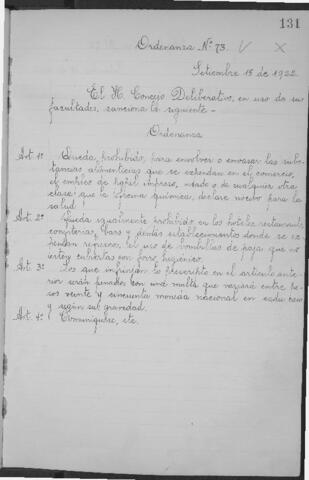 131
Ordenanza Nº 73. V X
Setiembre 15 de 1922
El H. Concejo Deliberativo, en uso de sus
facultades, sanciona la siguiente -
Ordenanza
Art. 1º Queda prohibido, para envolver o envasar las subs-
tancias alimenticias que se expendan en el comercio,
el empleo de papel impreso, usado o de cualquier otra
clase que la oficina química, declare nocivo para la
salud.
Art. 2º Queda igualmente prohibido en los hoteles, restaurants,
confiterías, bars y demás establecimientos donde se ex-
pendan refrescos, el uso de bombillas de paja que no
estén cubiertas con forro higiénico.
Art. 3º Los que infrinjan lo prescripto en el artículo ante-
rior serán penados con una multa que variará entre pe-
sos veinte y cincuenta moneda nacional en cada caso
y según su gravedad.
Art. 4º Comuníquese, etc.